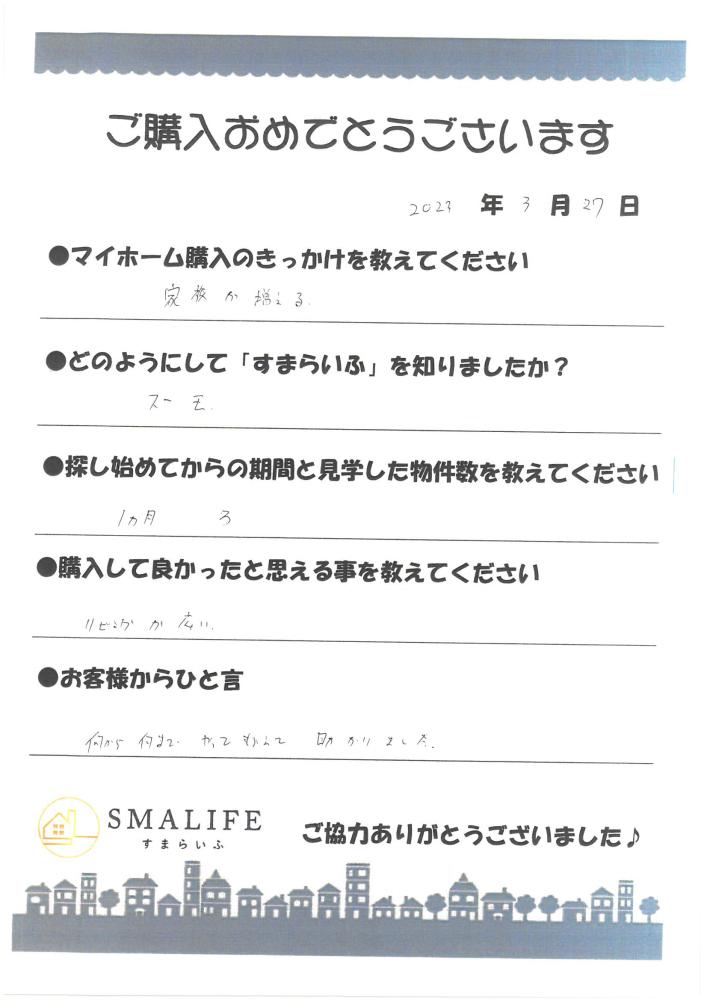 ご購入おめでとうございます
2023 年 3 月 27 日
●マイホーム購入のきっかけを教えてください
家族が増える.
●どのようにして「すまらいふ」を知りましたか？
スーモ.
●探し始めてからの期間と見学した物件数を教えてください
1ヵ月 3
●購入して良かったと思える事を教えてください
リビングが広い.
●お客様からひと言
何から何までやってもらって助かりました.
SMALIFE
すまらいふ
ご協力ありがとうございました♪